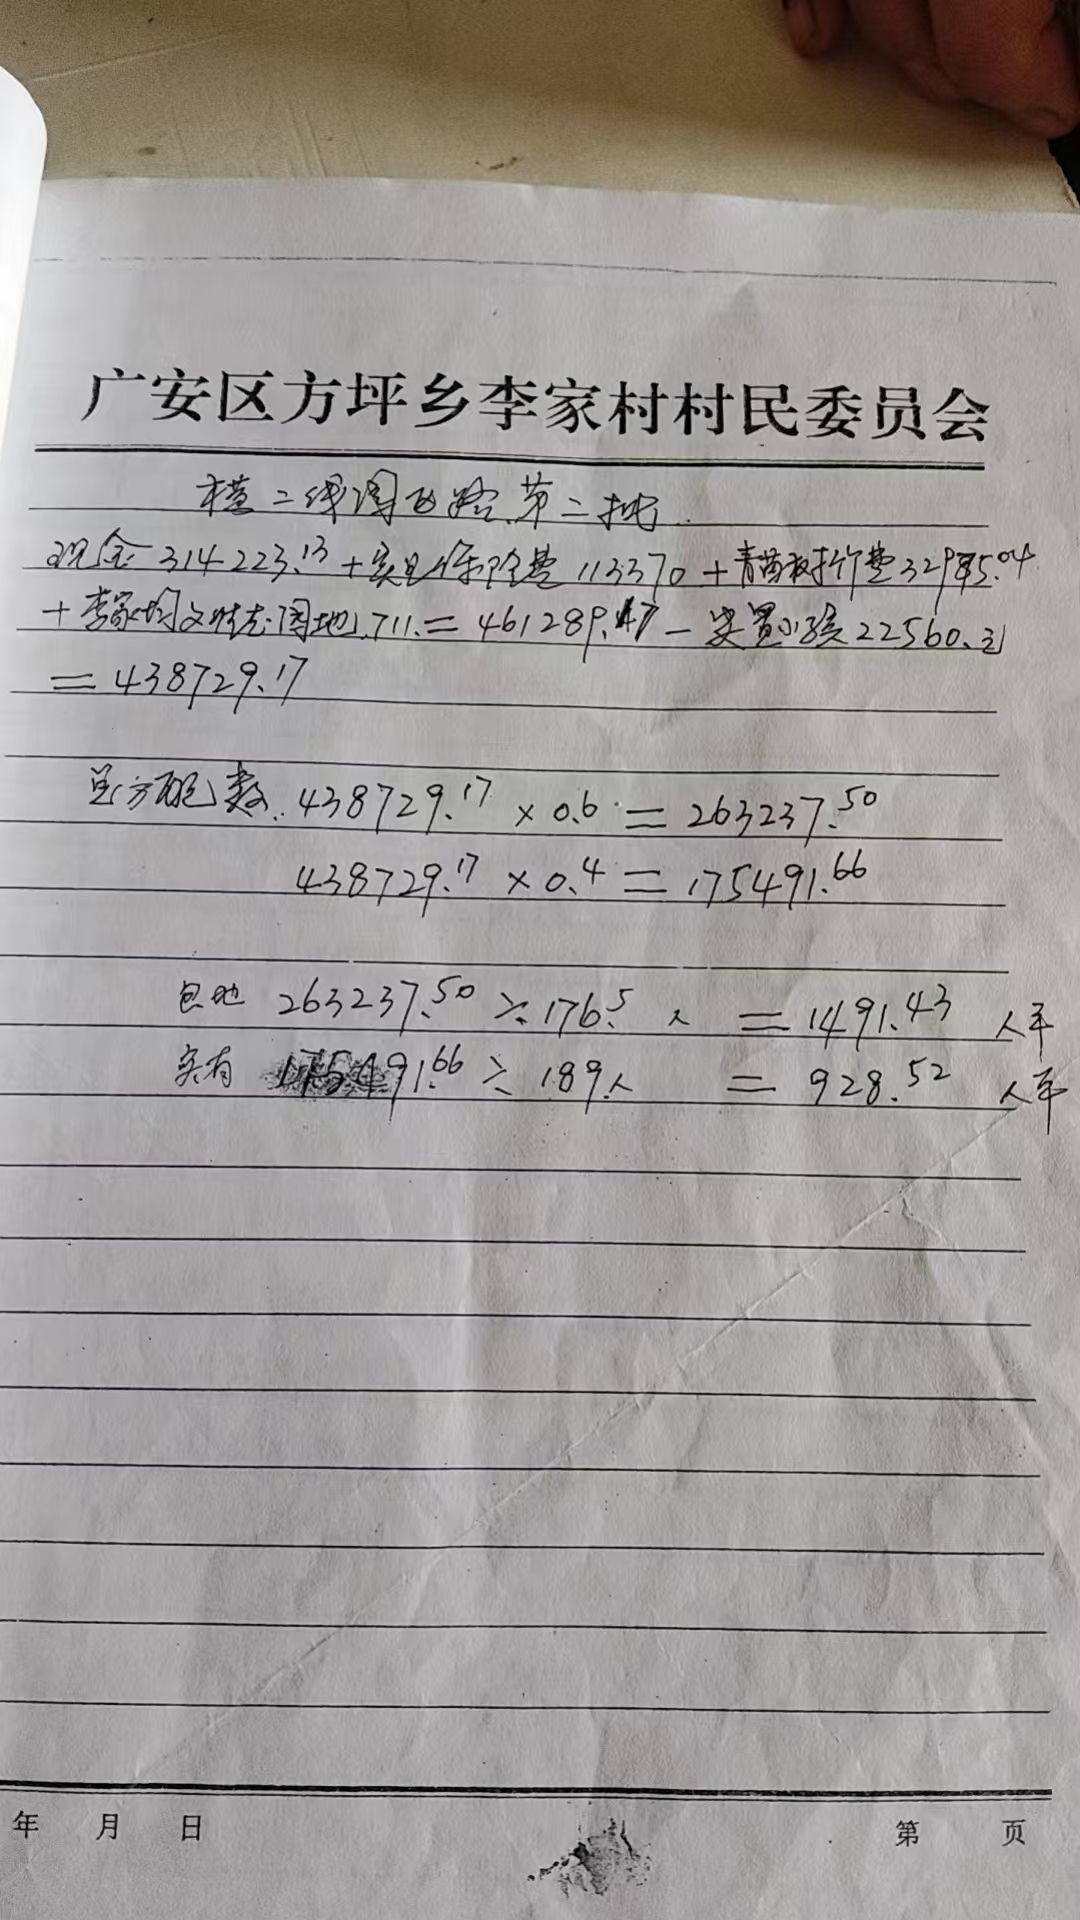 广安区方坪乡李家村村民委员会
横二线 路 第二批
现金314223.13+ 保险费113370+青苗 费32985.04
+李家 地711.=461289.17-安置小孩22560.元
=438729.17
配 数.438729.17×0.6=263237.50
438729.17×0.4=175491.66
包地 263237.50÷176.5人=1491.43 人平
实有 175491.66÷189人=928.52 人平
年 月 日 第 页